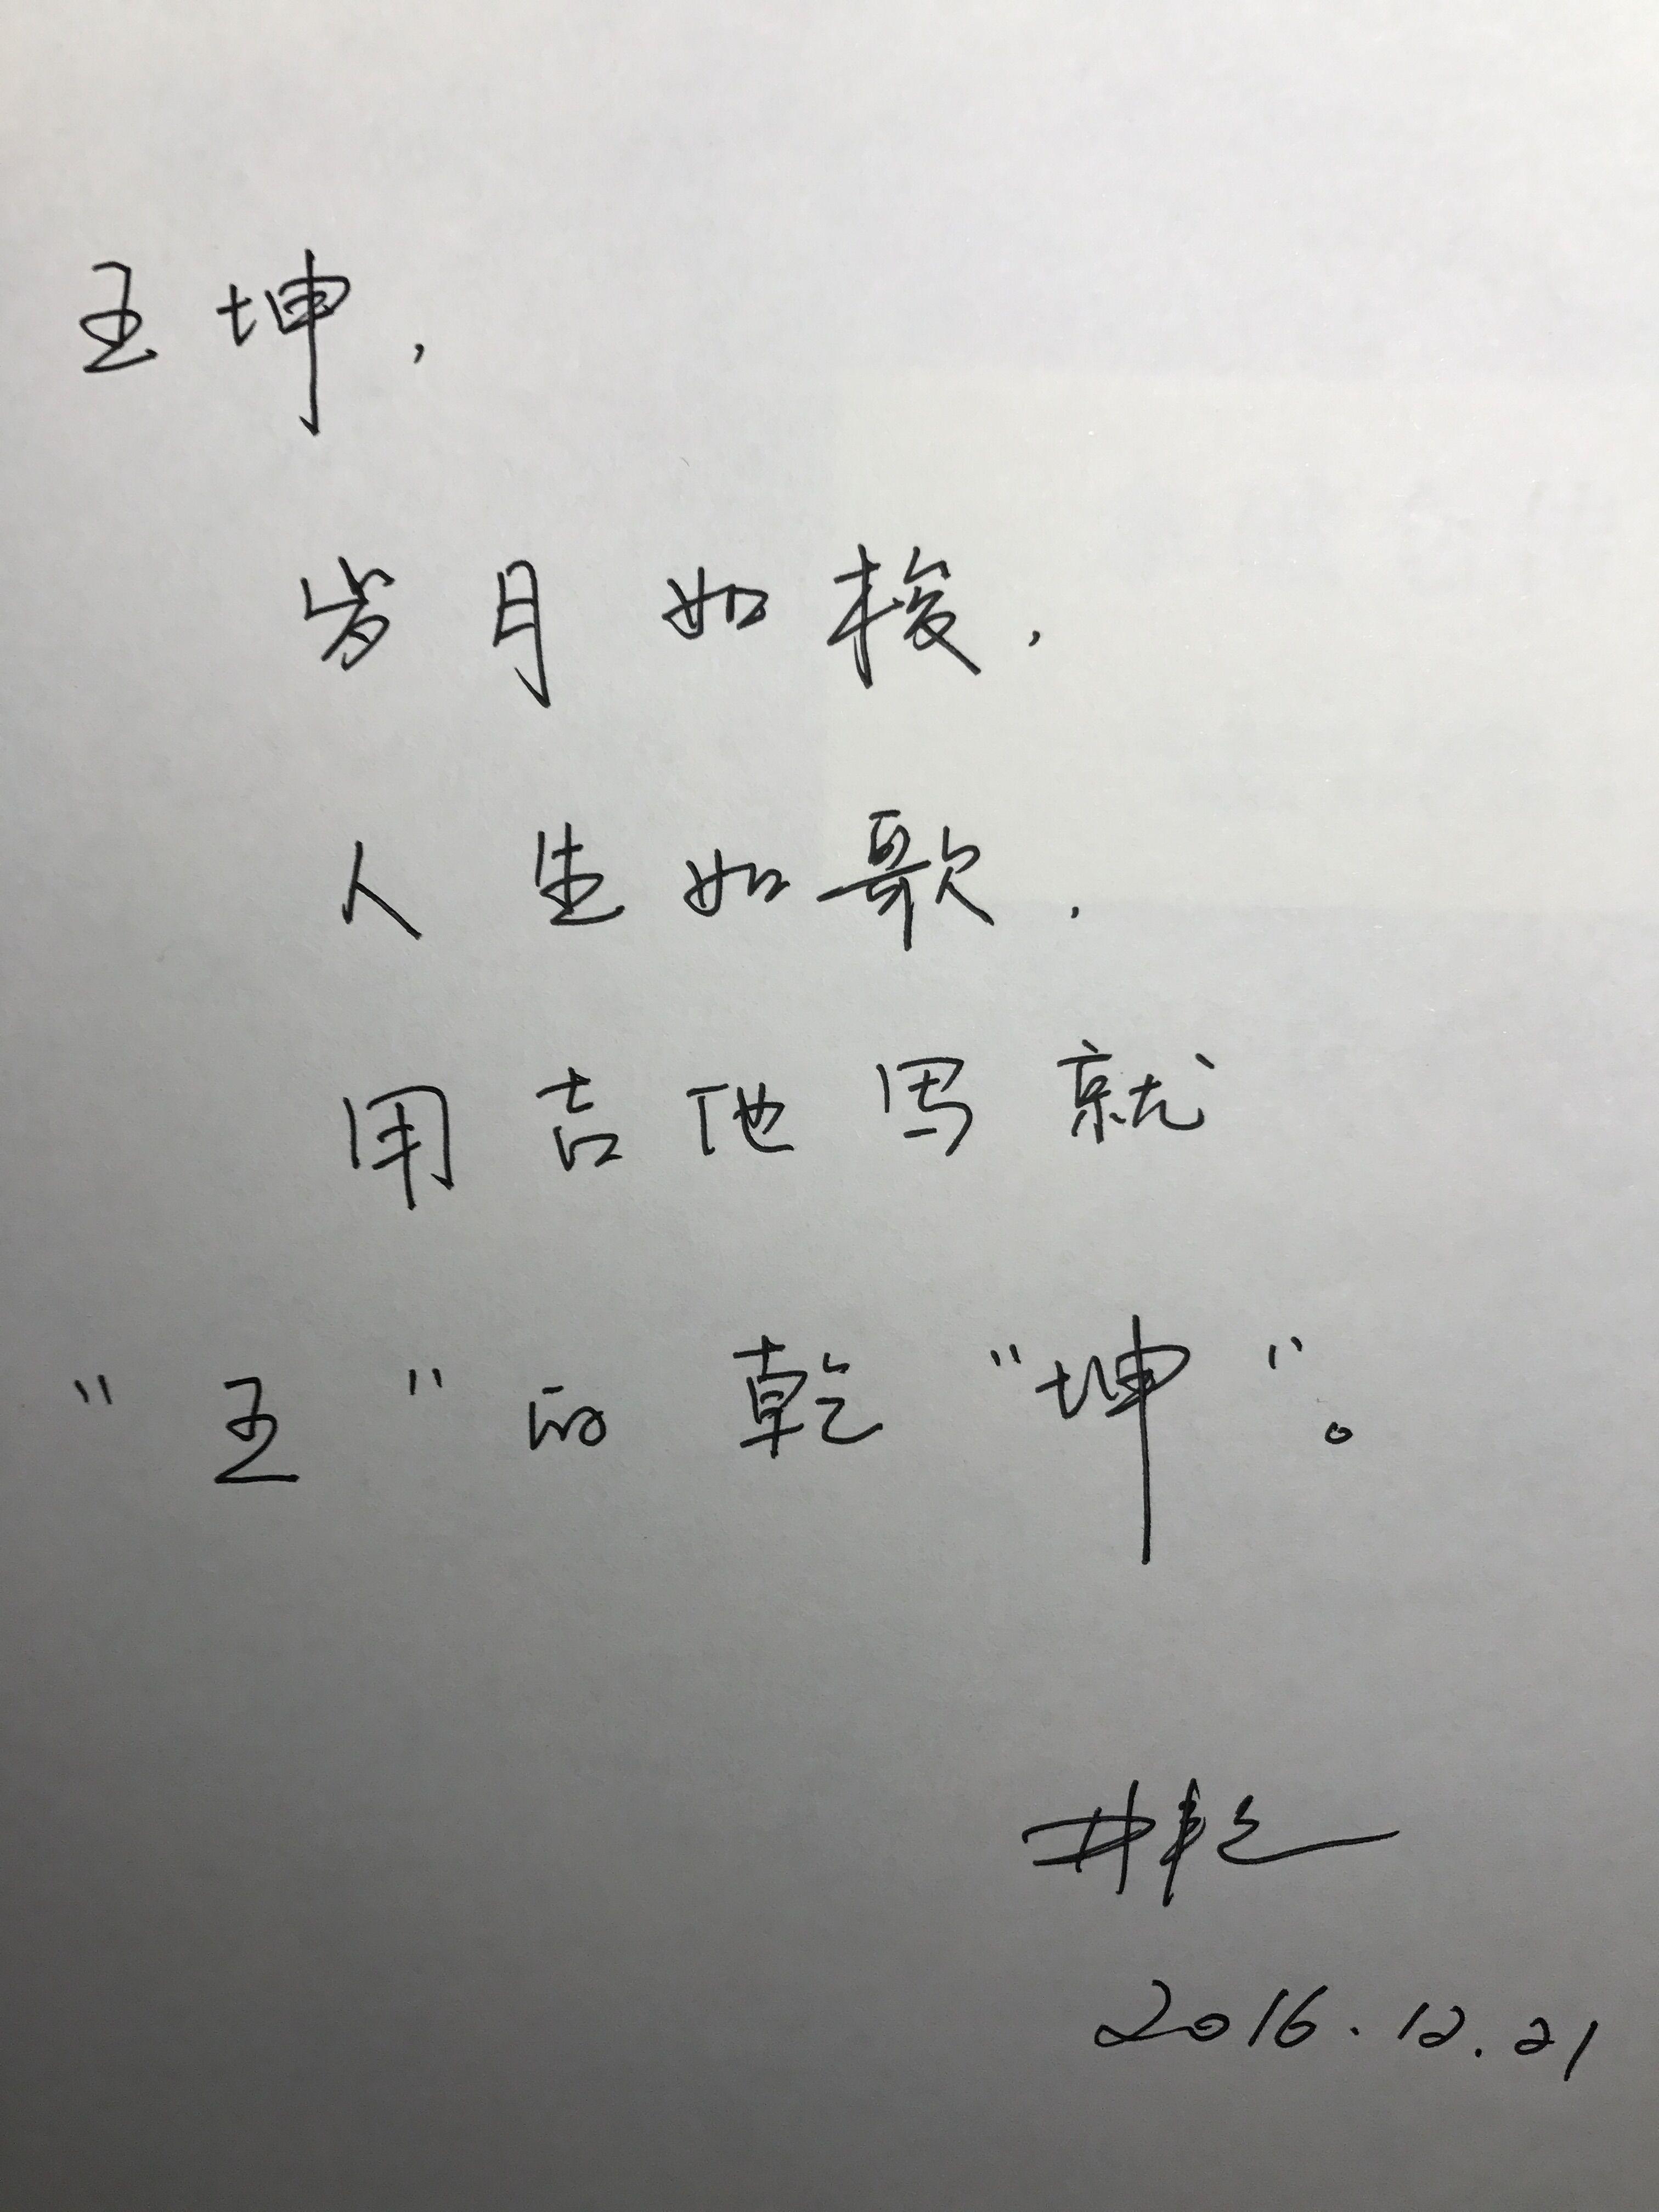 王坤，
岁月如梭，
人生如歌，
用吉他写就
“王”的乾“坤”。
2016.12.21